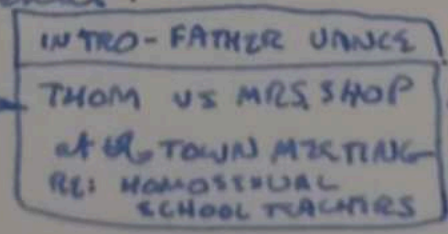 INTRO-FATHER VANCE
THOM VS MRS. SHOP
at the TOWN MEETING
RE: HOMOSEXUAL
SCHOOL TEACHERS